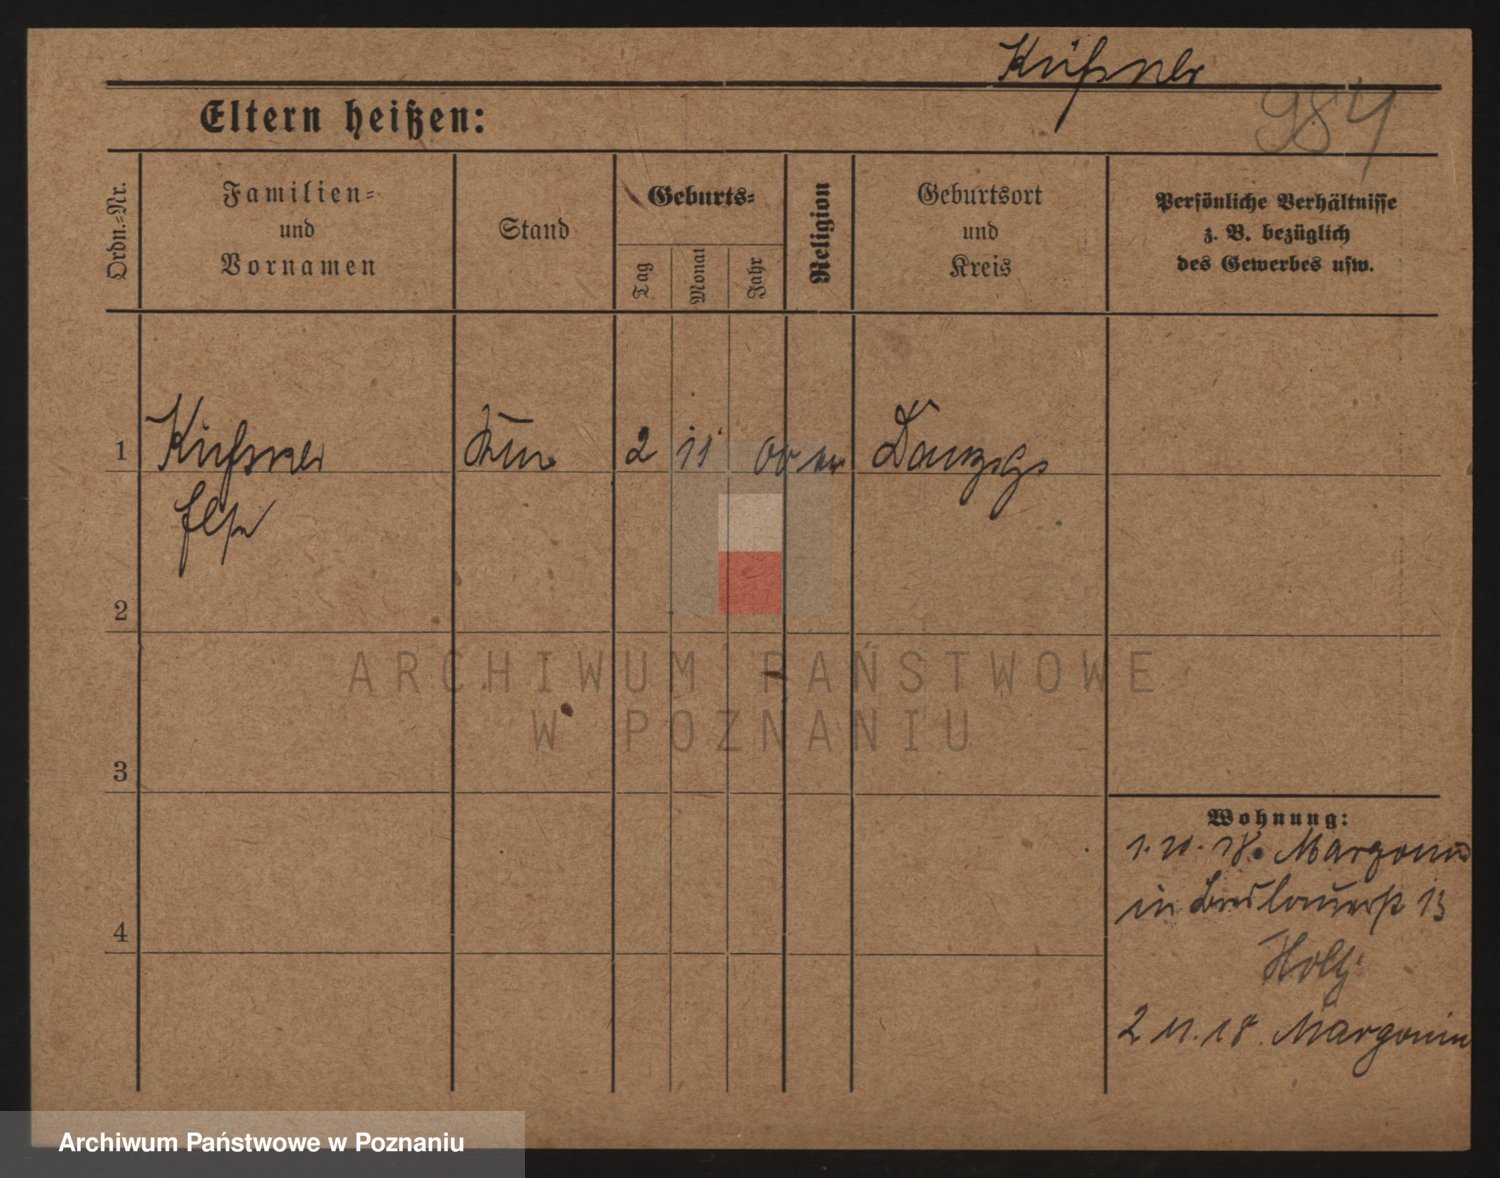 Küßner
984
Eltern heißen:
Ordn.=Nr.
Familien=
und
Vornamen
Stand
Geburts=
Tag
Monat
Jahr
Religion
Geburtsort
und
Kreis
Persönliche Verhältnisse
z. B. bezüglich
des Gewerbes usw.
1 Küßner 2 11 00 ev Danzig
Else
2
3
4
Wohnung:
1. 10. 18. Margonin
in Breslauerst 13
2 11. 18. Margonin
ARCHIWUM PAŃSTWOWE
W POZNANIU
Archiwum Państwowe w Poznaniu